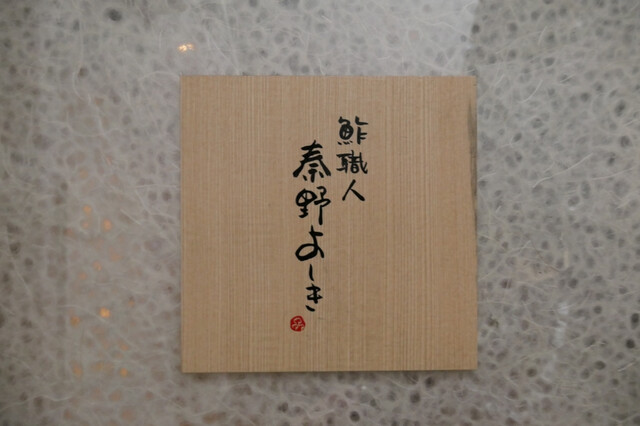 鮨職人
秦野よしき